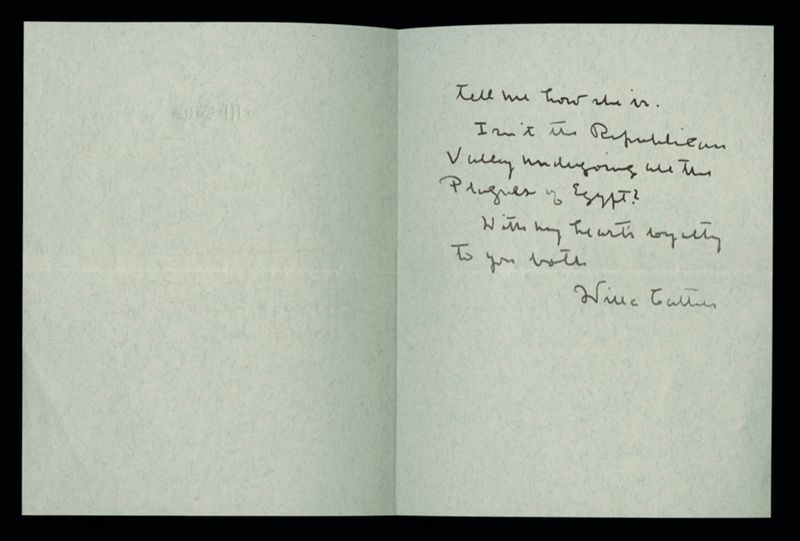 tell me how she is.
Isn't the Republican
Valley undergoing all the
Plagues of Egypt?
With my heart's loyalty
to you both
Willa Cather